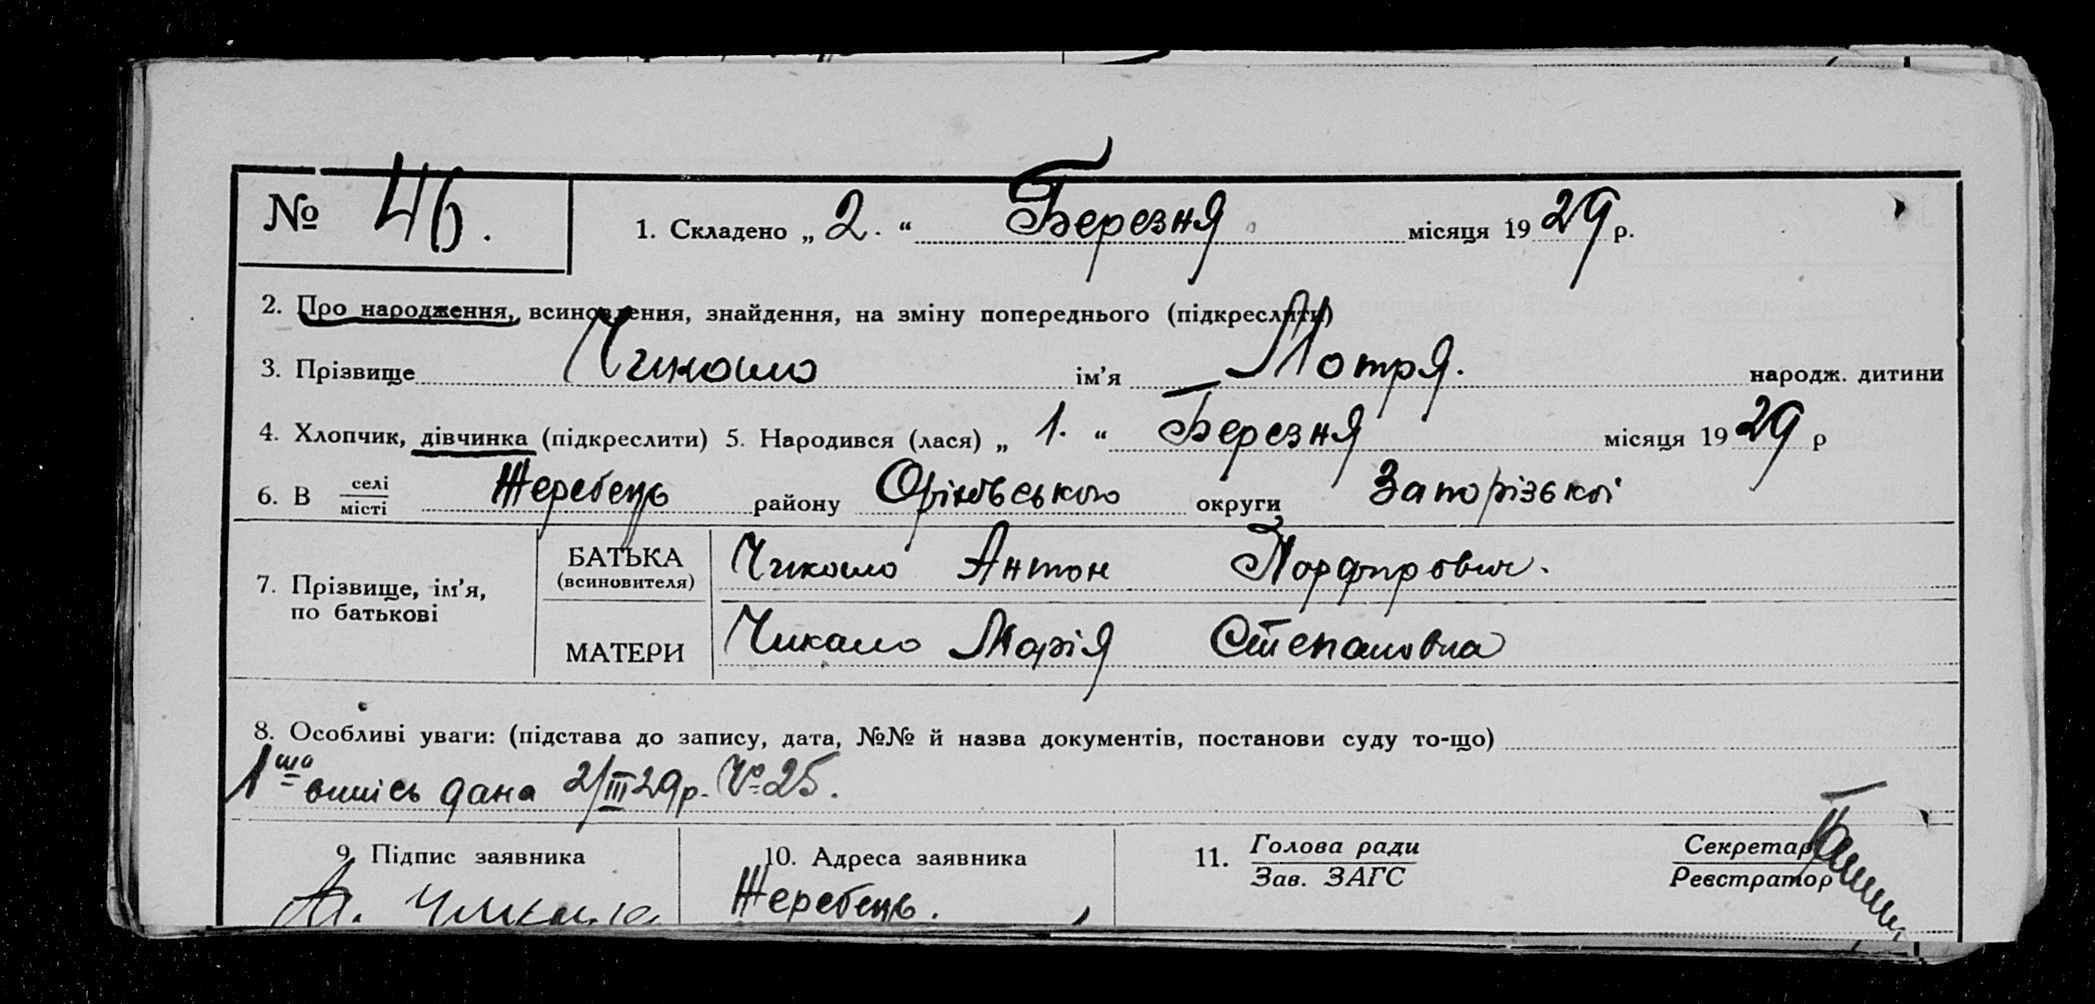 № 46.
1. Складено „ 2. “ Березня місяця 1929 р.
2. Про народження, всиновлення, знайдення, на зміну попереднього (підкреслити)
3. Прізвище ім'я Мотря. народж. дитини
4. Хлопчик, дівчинка (підкреслити) 5. Народився (лася) „ 1. “ Березня місяця 1929 р
6. В селі місті Жеребець району Оріхівського округи Запорізької
7. Прізвище, ім'я, по батькові
БАТЬКА (всиновителя) Антон Порфирович.
МАТЕРИ Марія Степановна
8. Особливі уваги: (підстава до запису, дата, №№ й назва документів, постанови суду то-що)
1ша випись дана 2/III 29р. № 25.
9. Підпис заявника
10. Адреса заявника
Жеребець.
11. Голова ради
Зав. ЗАГС
Секретар
Реєстратор